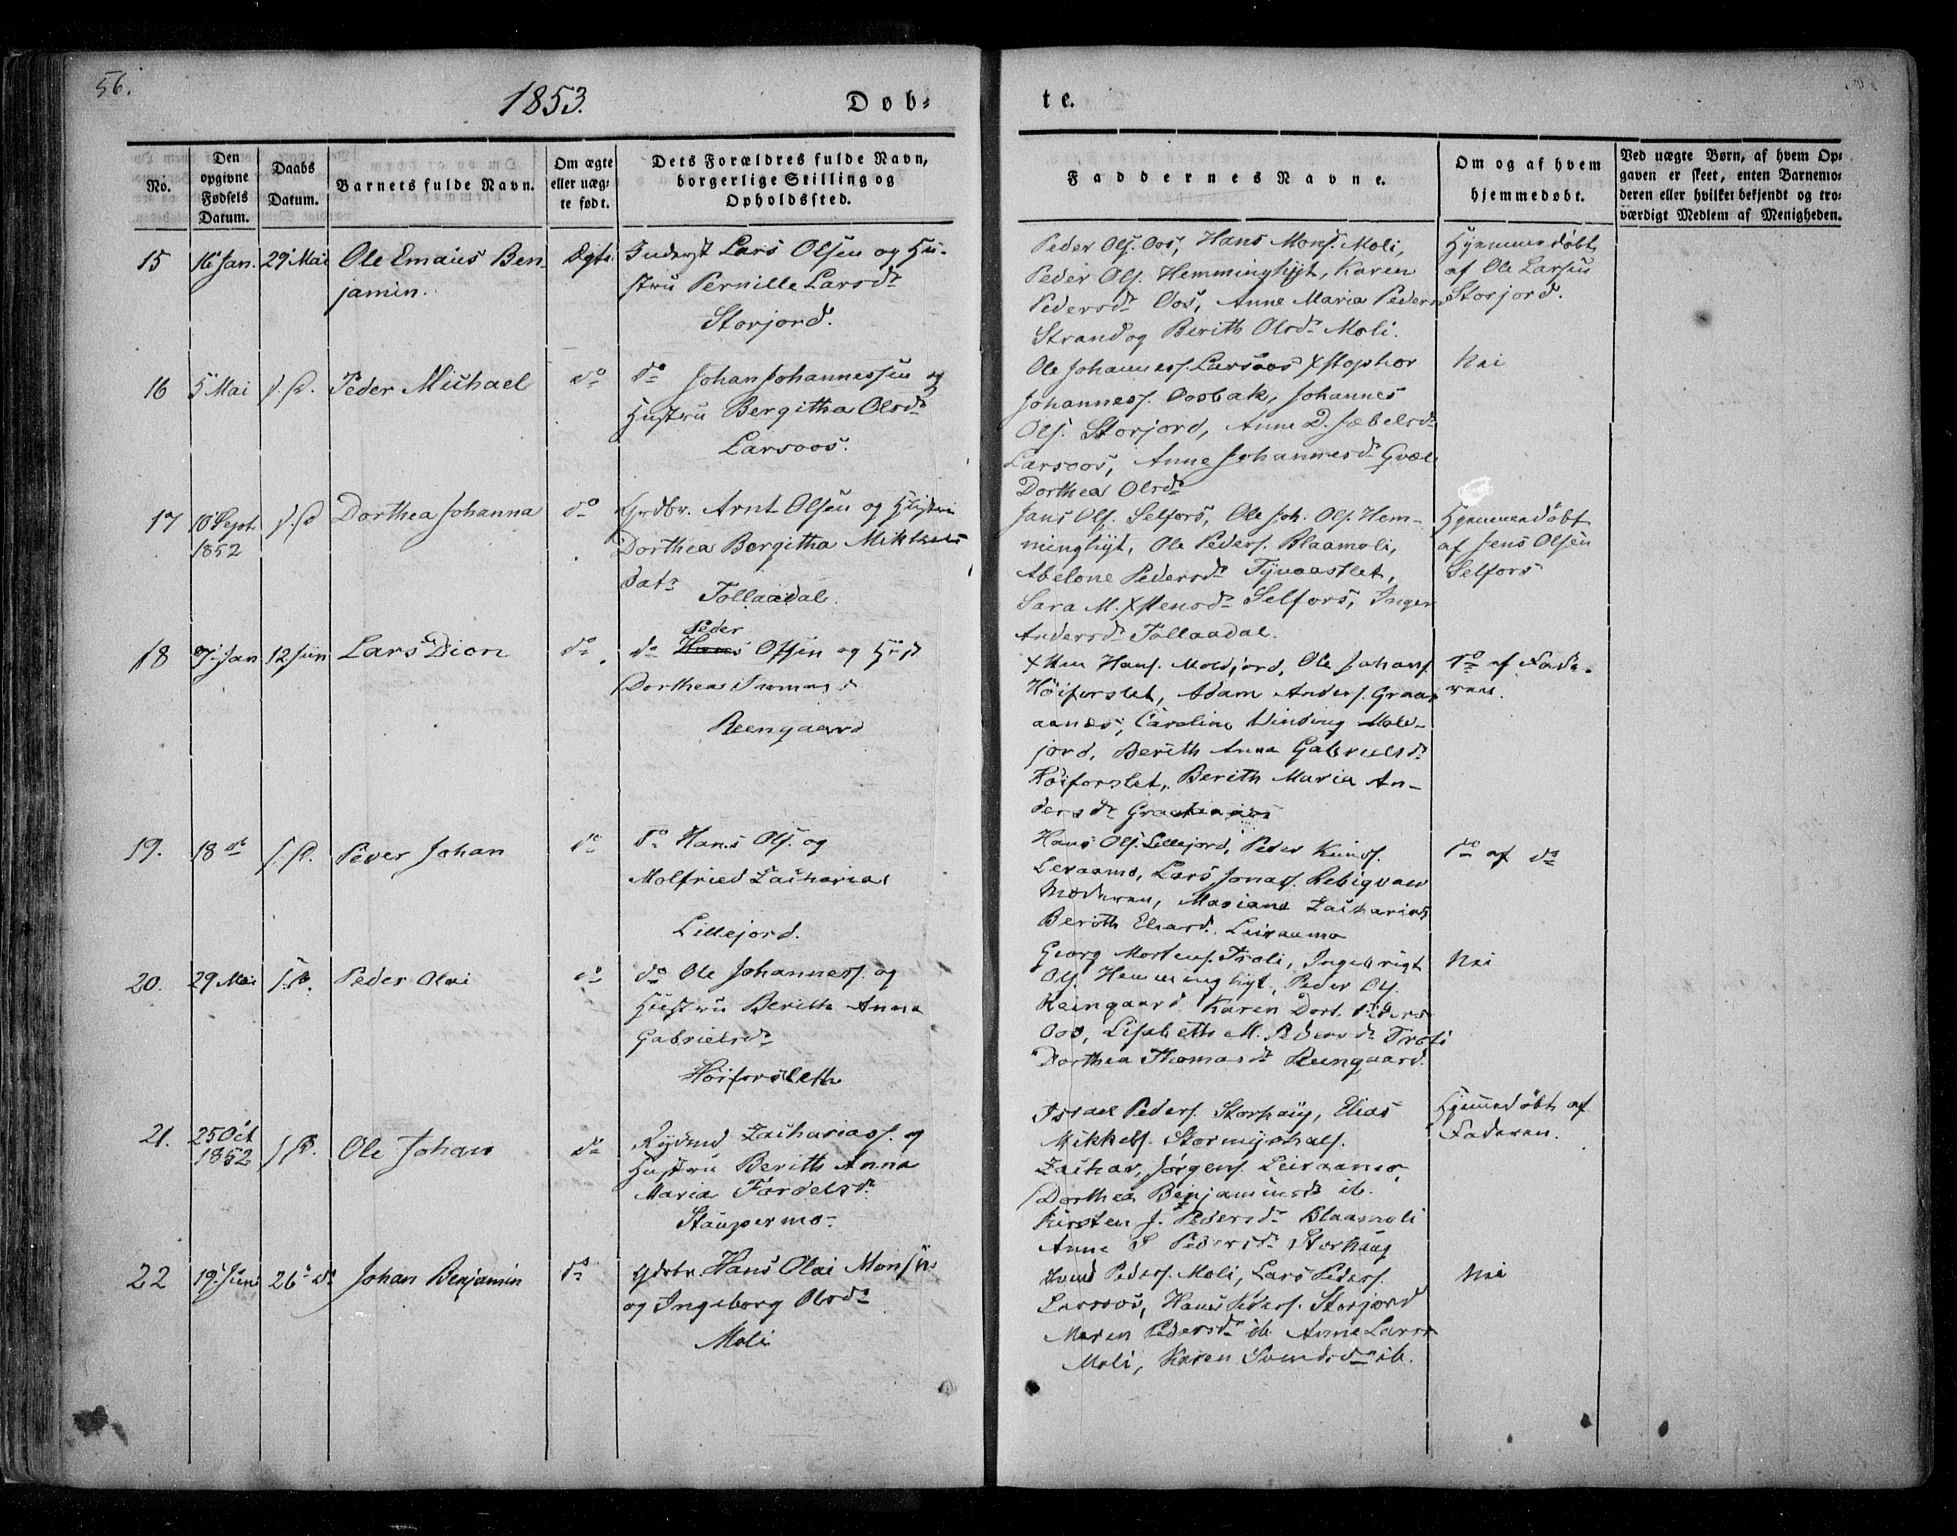 56.
1853.
Døb-
te.
No.
Den opgivne Fødsels Datum.
Daabs Datum.
Barnets fulde Navn.
Om ægte eller uægte født.
Dets Forældres fulde Navn, borgerlige Stilling og Opholdssted.
Faddernes Navne.
Om og af hvem hjemmedøbt.
Ved uægte Børn, af hvem Opgaven er skeet, enten Barnemoderen eller hvilket bekjendt og troværdigt Medlem af Menigheden.
15 16 Jan. 29 Mai Ole Emaus Ben-
jamin.
Ægte
Inderst Lars Olsen og Hu-
stru Pernille Larsd.
Storjord.
Peder Ols. Oos, Hans Mons. Moli,
Peder Ols. Hemminghyt, Karen
Pedersd. Oos, Anne Maria Peders
Strand og Berith Olsd. Moli.
Hjemmedøbt
af Ole Larsen
Storjord.
16 5 Mai s. D. Peder Michael
do
do Johan Johannessen og
Hustru Bergitha Olsd.
Larsoos.
Ole Johanness. Larsoos Xstophor
Johanness. Oosbak, Johannes
Ols. Storjord, Anne D. Jæbelsd.
Larsoos, Anne Johannesd. Gvæl
Dorthea Olsd.
Nei
17 10 Sept. 1852 s. D Dorthea Johanna
do
Grdbr. Arnt Olsen og Hustru
Dorthea Bergitha Mikkels
Datr
Tollaadal.
Jens Ols. Selfors, Ole Joh. Ols. Hem-
minghyt, Ole Peders. Blaamoli,
Abelone Pedersd. Tjvaaslet,
Sara M. Xstensd. Selfors, Inger
Andersd. Tollaadal.
Hjemmedøbt
af Jens Olsen
Selfors
18 7 Jan 12 Jun Lars Dion
do
Peder
do Hans Olsen og Hust
Dorthea Thomasd
Reengaard
Xsten Hans. Moldjord, Ole Johans.
Høiforslet, Adam Anders. Graa-
aanes, Caroline Winding Mold-
jord, Berith Anna Gabrielsd.
Høiforslet, Berith Maria An-
dersd. Graaaanes
do af Fade-
ren.
19. 18 do s. D. Peder Johan
do
do Hans Ols. og
Molfried Zacharias
Lillejord.
Hans Ols. Lillejord, Peder Knuds.
Leiraamo, Lars Jonas.
Moderen, Mariane Zacharias
Berith Eliasd. Leiraamo
do af do
20. 29 Mai s. D. Peder Olai
do
do Ole Johanness. og
Hustru Berith Anna
Gabrielsd.
Høiforsleth
Georg Mortens. Troli, Ingebrigt
Ols. Hemminghyt, Peder Ols.
Reengaard Karen Dort. Peders
Oos, Lisabeth M. Pedersd. Troli
Dorthea Thomasd. Reengaard.
Nei
21. 25 Oct 1852 s. D. Ole Johan
do
Rydnd Zacharias. og
Hustru Berith Anna
Maria Fardelsd.
Staupermo.
Israel Peders. Storhaug, Elias
Mikkels. Stormyrhals.
Zachar. Jørgens. Leiraamo
Dorthea Benjaminsd. ib.
Kirsten J. Pedersd. Blaamoli
Anne S Pedersd. Storhaug
Hjemmedøbt af
Faderen.
22 19 Juni 26 do Johan Benjamin
do
Grdbr. Hans Olai Monsen
og Ingeborg Olsd.
Moli
Svend Peders. Moli, Lars Peders.
Larsoos, Hans Peders. Storjord
Maren Pedersd. ib. Anne Larsd
Moli, Karen Svendsd. ib.
Nei